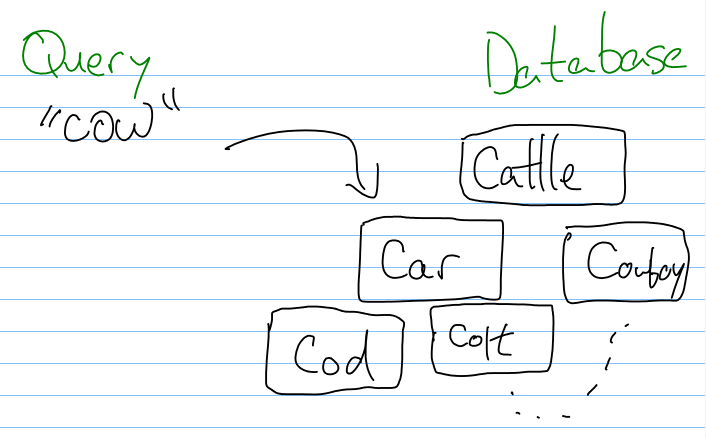 Query
Database
"cow"
Cattle
Car
Cowboy
Cod
Colt